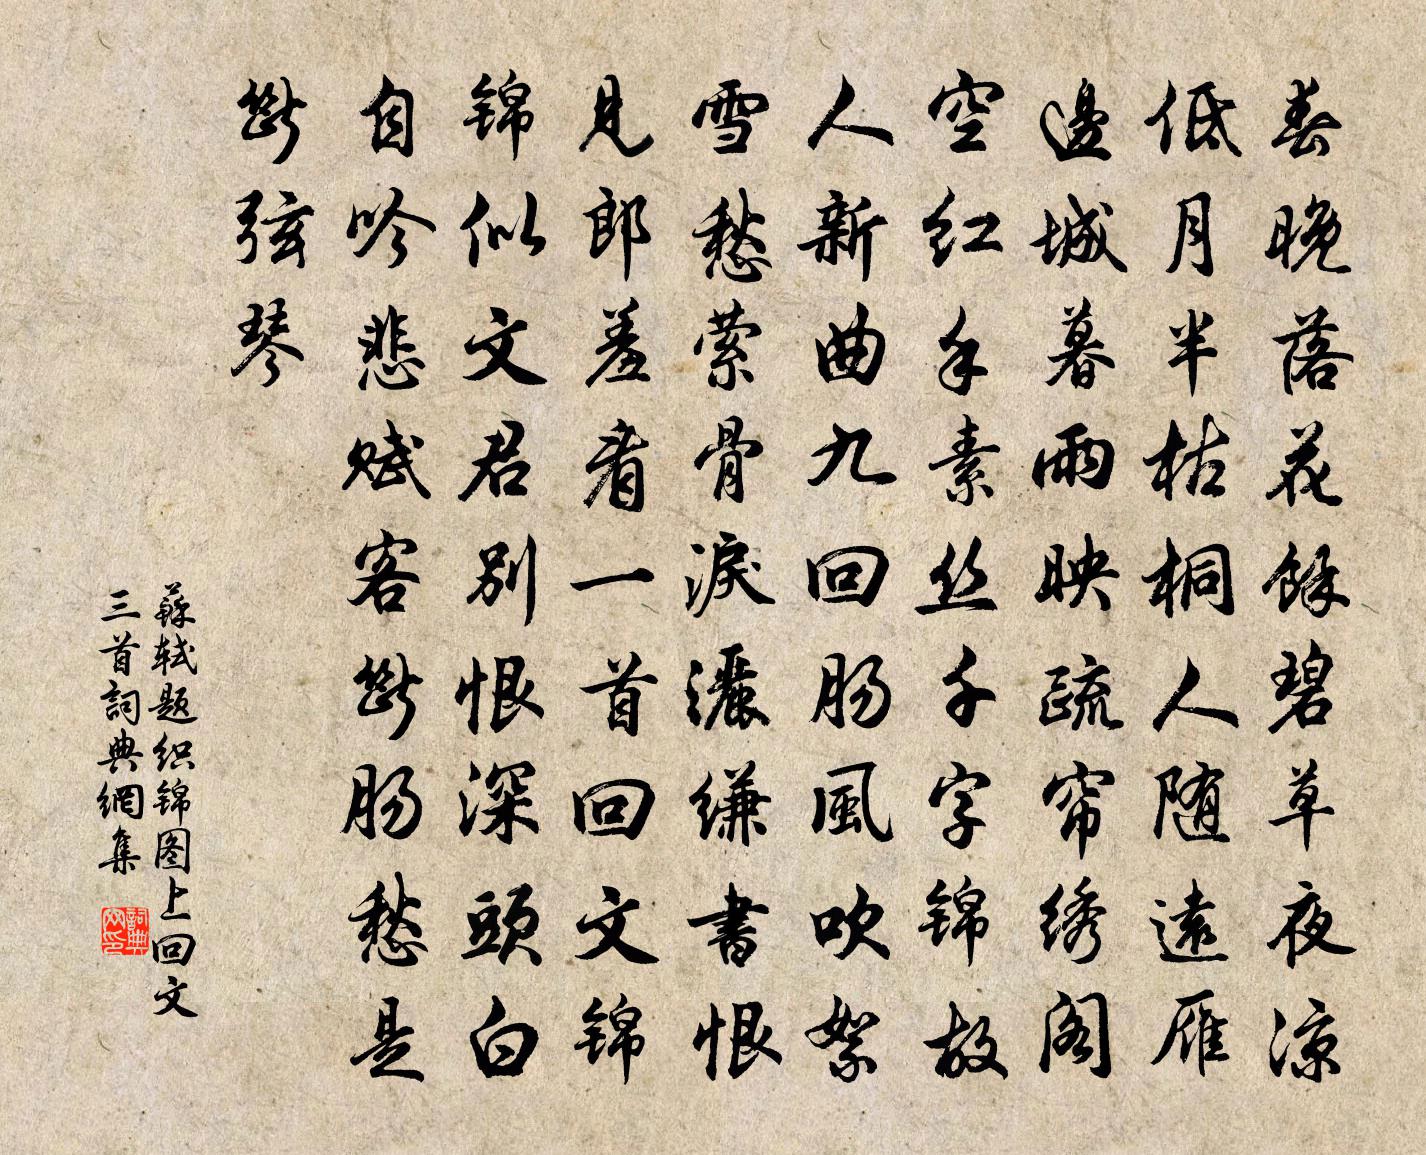 春晚落花餘碧草夜涼
低月半枯桐人随遠雁
邊城暮雨映疏帘绣阁
空红手素丝千字锦故
人新曲九回肠風吹絮
雪愁萦骨淚灑缣書恨
見郎羞看一首回文锦
锦似文君别恨深頭白
自吟悲赋客斷肠愁是
斷弦琴
蘇轼题织锦图上回文
三首詞典網集
詞典网印